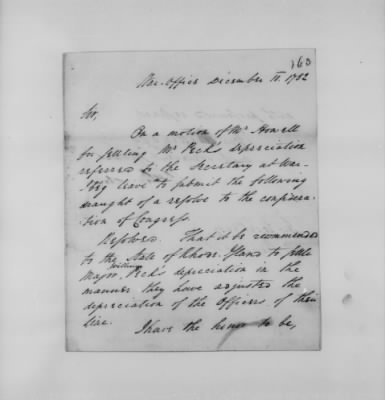 163
War-Office December 11. 1782
Sir,
On a motion of Mr Howell
for settling Mr Peck's depreciation
referred to the Secretary at War-
I beg leave to submit the following
draught of a resolve to the considera-
tion of Congress
Resolved. That it be recommended
to the State of Rhode Island to settle
Major William Peck's depreciation in the
manner they have adjusted the
depreciation of the Officers of their
line.
I have the honor to be,